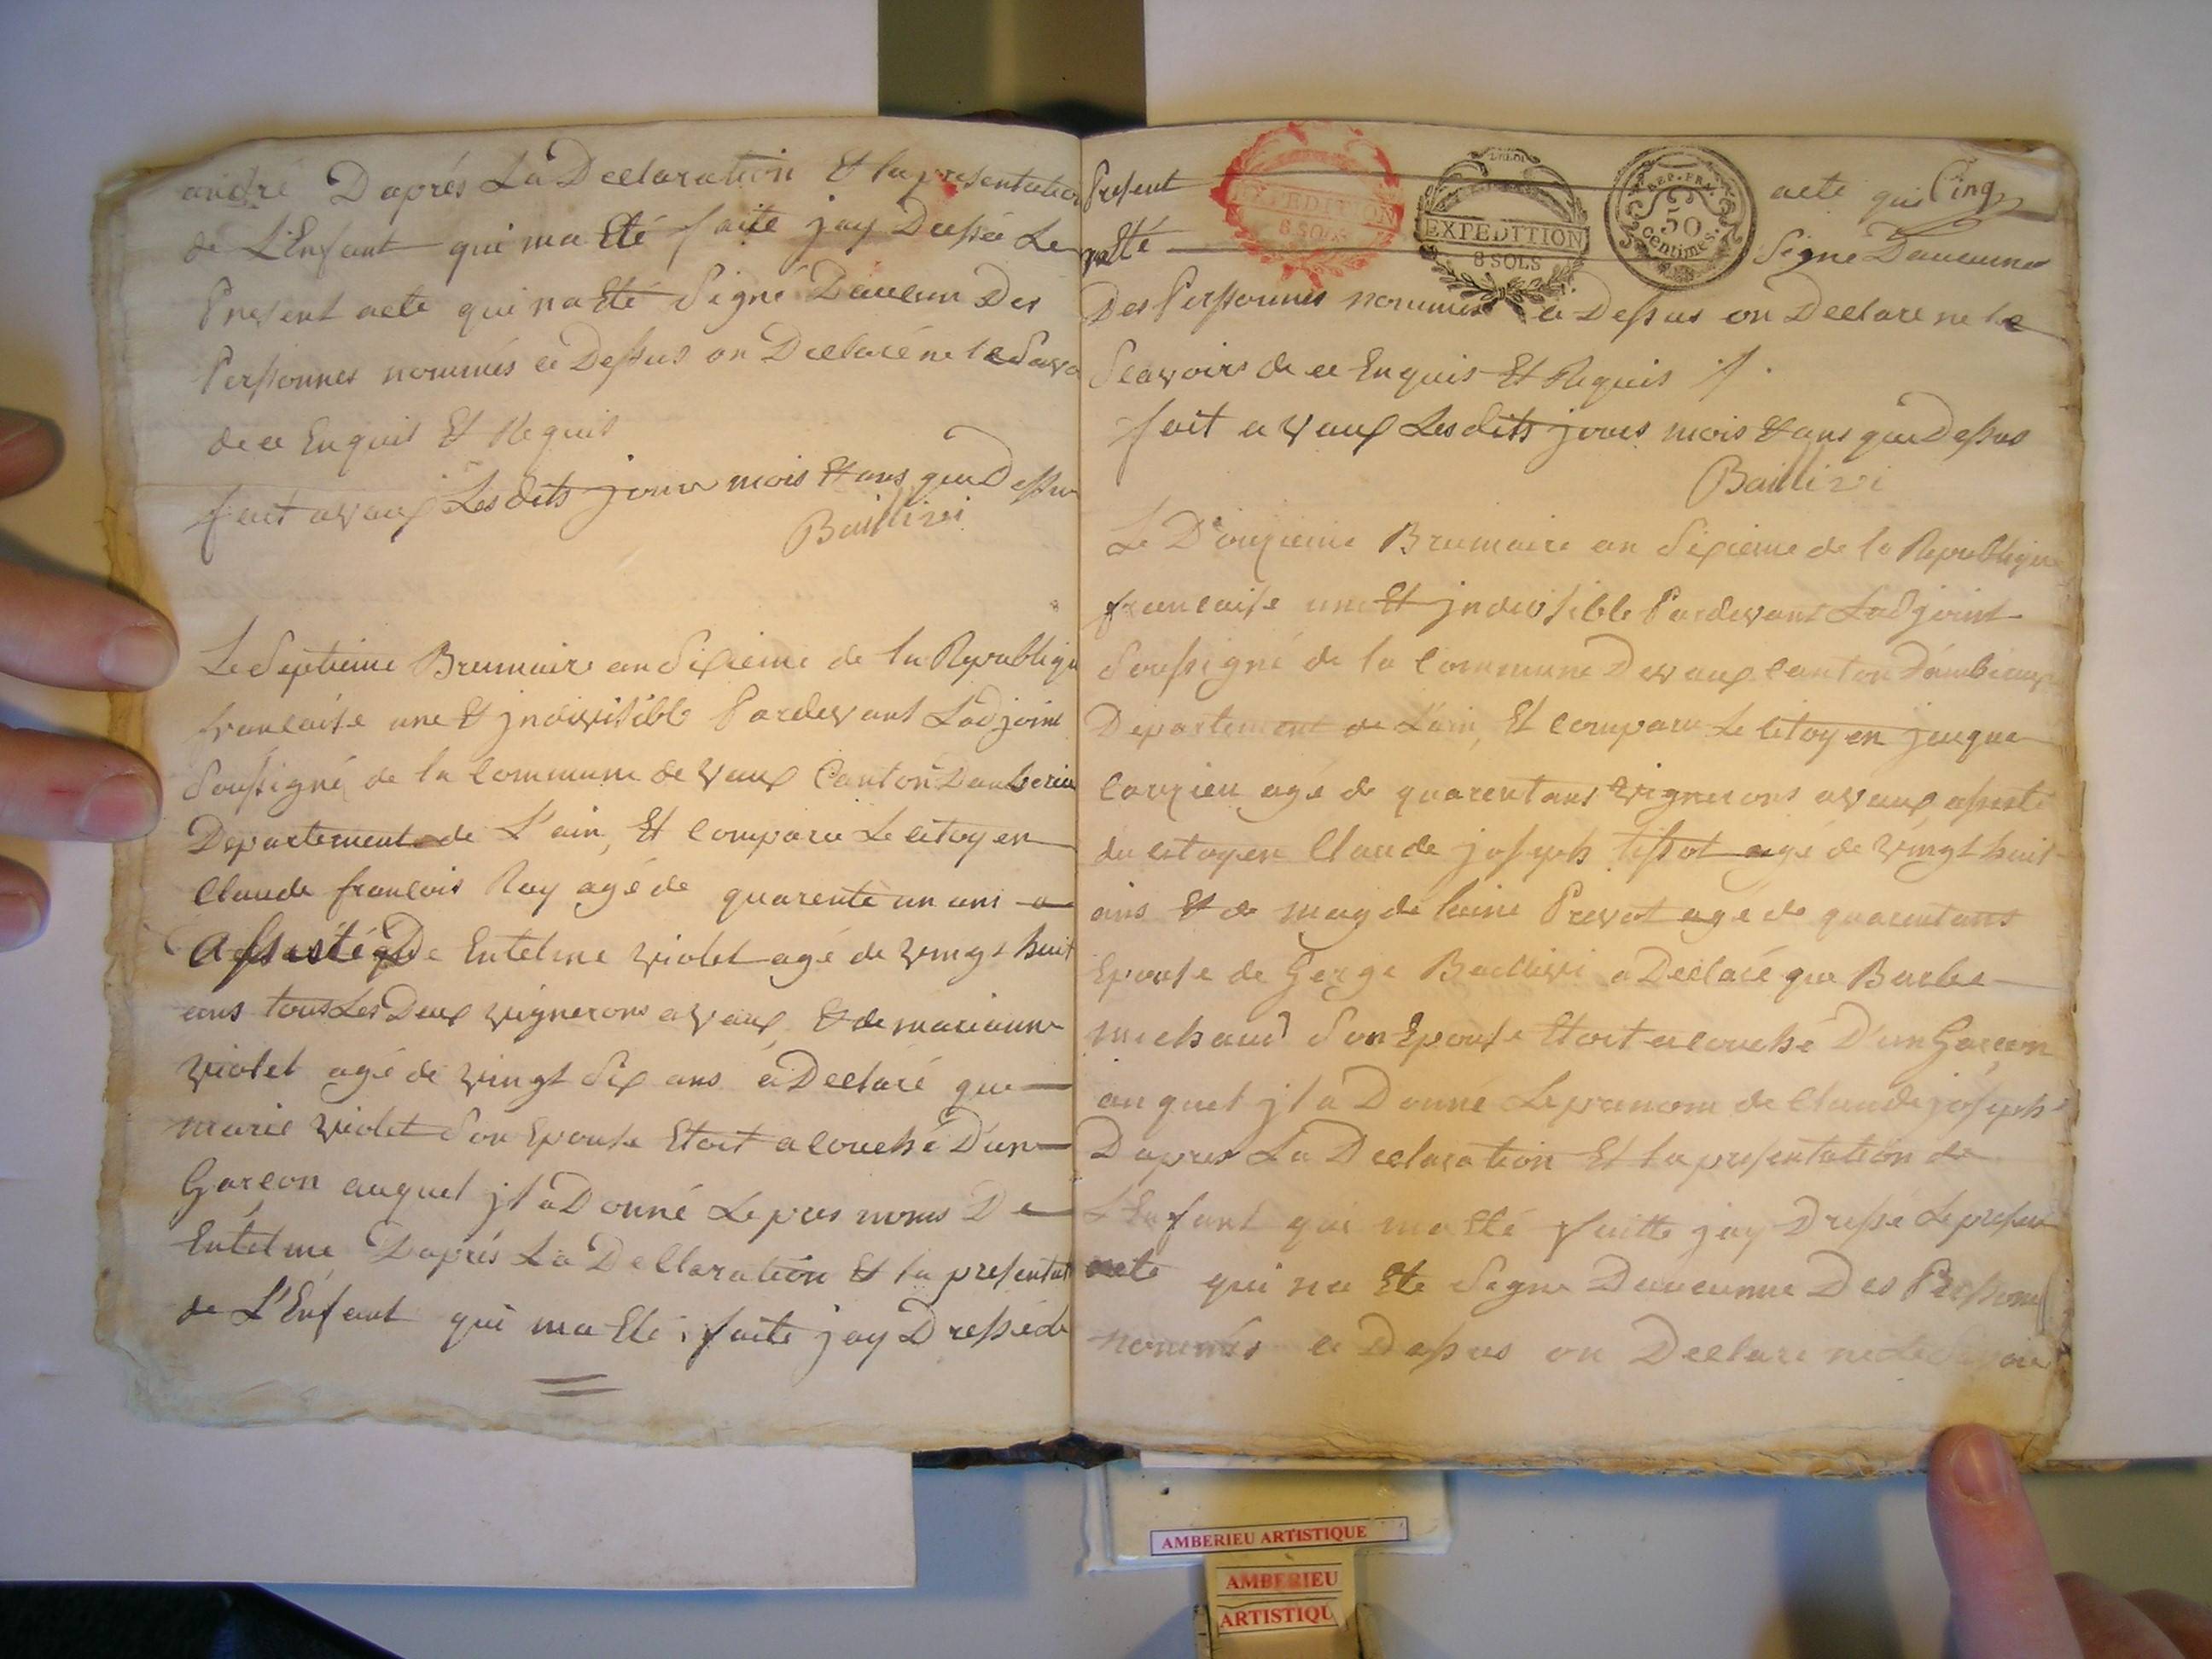 andré D'aprés La Declaration Et la presentation
de L'Enfant qui ma Eté faite jay Dressée Le
Present acte qui na Eté Signé Daucun Des
Personnes nommés ce Dessus on Declaré ne le Savo
de ce Enquis Et Requis
fait a vaux Les dits jour mois Et ans que Dessus
Baillivi
Le Septieme Brumaire an Sixieme de la Republiqu
francaise une Et jndivisible Pardevant Ladjoint
Soussigné de la Commune de vaux Canton Damberieu
Departement de L'ain, Et Comparu Le Citoyen
Claude francois Ray agé de quarente un ans a
Assisté De Entelme violet agé de vingt huit
ans tous Les Deux vignerons a vaux, Et de marianne
violet agé de vingt Six ans a Declaré que
marie violet Son Epouse Etoit a Couché D'un
Garcon auquel jl a Donné Le pres noms De
Entelme D'aprés La Dellaration Et la presentat
de L'Enfant qui ma Eté faite jay Dressé de
Present acte qui Cinq
na Eté Signé Daucunne
EXPEDITION
8 SOLS
EXPEDITION
8 SOLS
DEP. FRA.
50
centimes.
Des Personnes nommés ce Dessus on Declare ne le
Scavoirs de ce Enquis Et Requis
fait a vaux Les dits jours mois Et ans que Dessus
Baillivi
Le D'ouzieme Brumaire an Sixieme de la Republique
francaise une Et jndivisible Pardevant Ladjoint
Soussigné de la Commune De vaux Canton D'ambérieux
Departement de L'ain, Et Comparu Le Citoyen jacque
agé de quarent ans vignerons a vaux, assisté
du Citoyen Claude joseph tissot agé de vingt huit
ans Et de magdelaine Prevot agé de quarent ans
Epouse de Gerge Baillivi a Declaré que Barbe
michaud Son Epouse Etoit a Couché D'un Garcon
auquel jl a Donné Le pranom de Claude joseph
D'apres La Declaration Et la presentation de
L'Enfant qui ma Eté faitte jay Dressé Le presen
acte qui na Ete Signe Daucunne Des Personnes
nommés ce Dessus on Declare ne Le
AMBERIEU ARTISTIQUE
AMBERIEU
ARTISTIQU